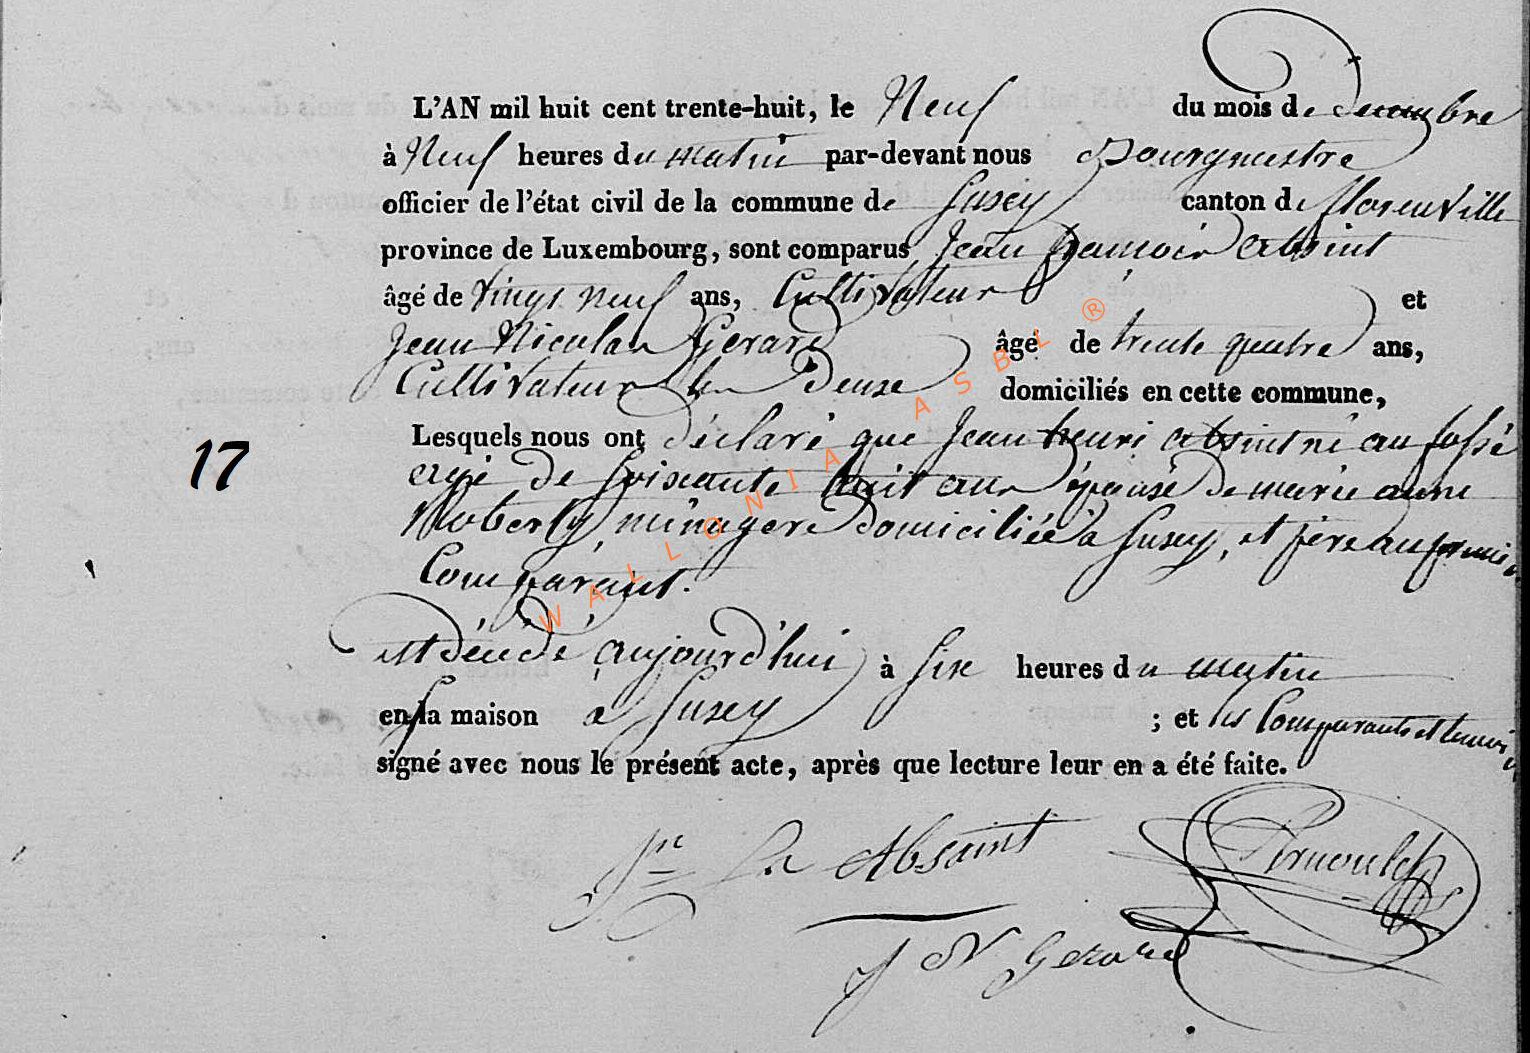 L'AN mil huit cent trente-huit, le Neuf du mois de decembre
à Neuf heures du matin par-devant nous Bourgmestre
officier de l'état civil de la commune de Suxey canton de florenville
province de Luxembourg, sont comparus Jean francois Absint
âgé de vingt neuf ans, Cultivateur et
Jean Nicolas Gerard âgé de trente quatre ans,
Cultivateur domiciliés en cette commune,
Lesquels nous ont déclaré que Jean henri absint né au fossé
17
agé de soixante huit ans épousé de marie anne
Noberty, ménagere domiciliée à Suxey, et père au premier
Comparant.
est décédé aujourd'hui à six heures du matin
en sa maison à Suxey ; et les Comparants et temoins
signé avec nous le présent acte, après que lecture leur en a été faite.
Absaint
J N Gerard
WALLONIA ASBL ®